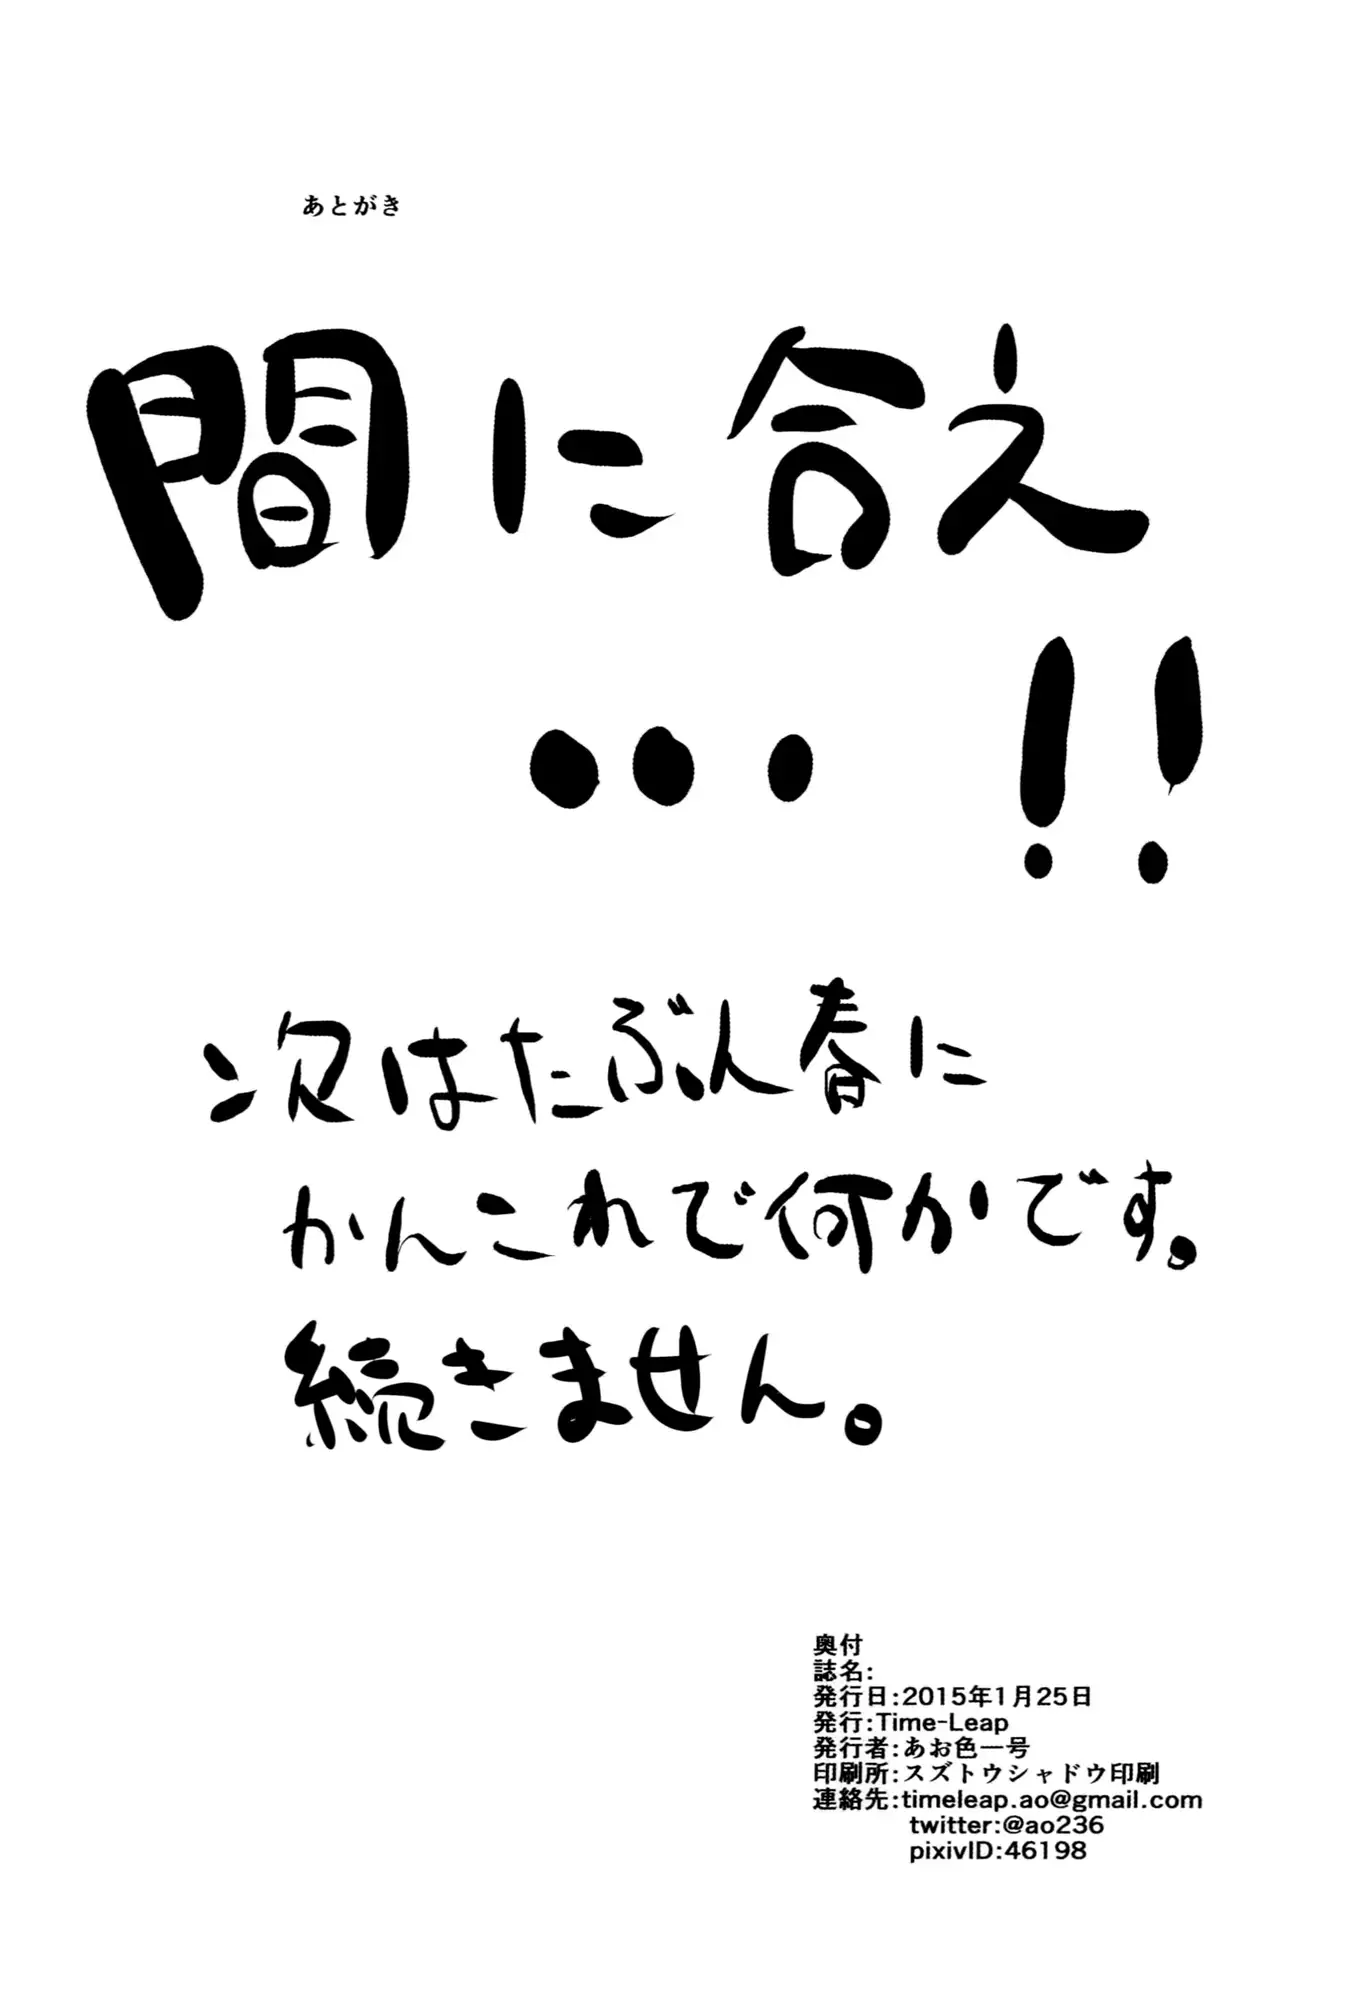 あとがき
間に合え
…!!
次はたぶん春に
かんこれで何かです。
続きません。
奥付
誌名:
発行日:2015年1月25日
発行:Time-Leap
発行者:あお色一号
印刷所:スズトウシャドウ印刷
連絡先:timeleap.ao@gmail.com
twitter:@ao236
pixivID:46198